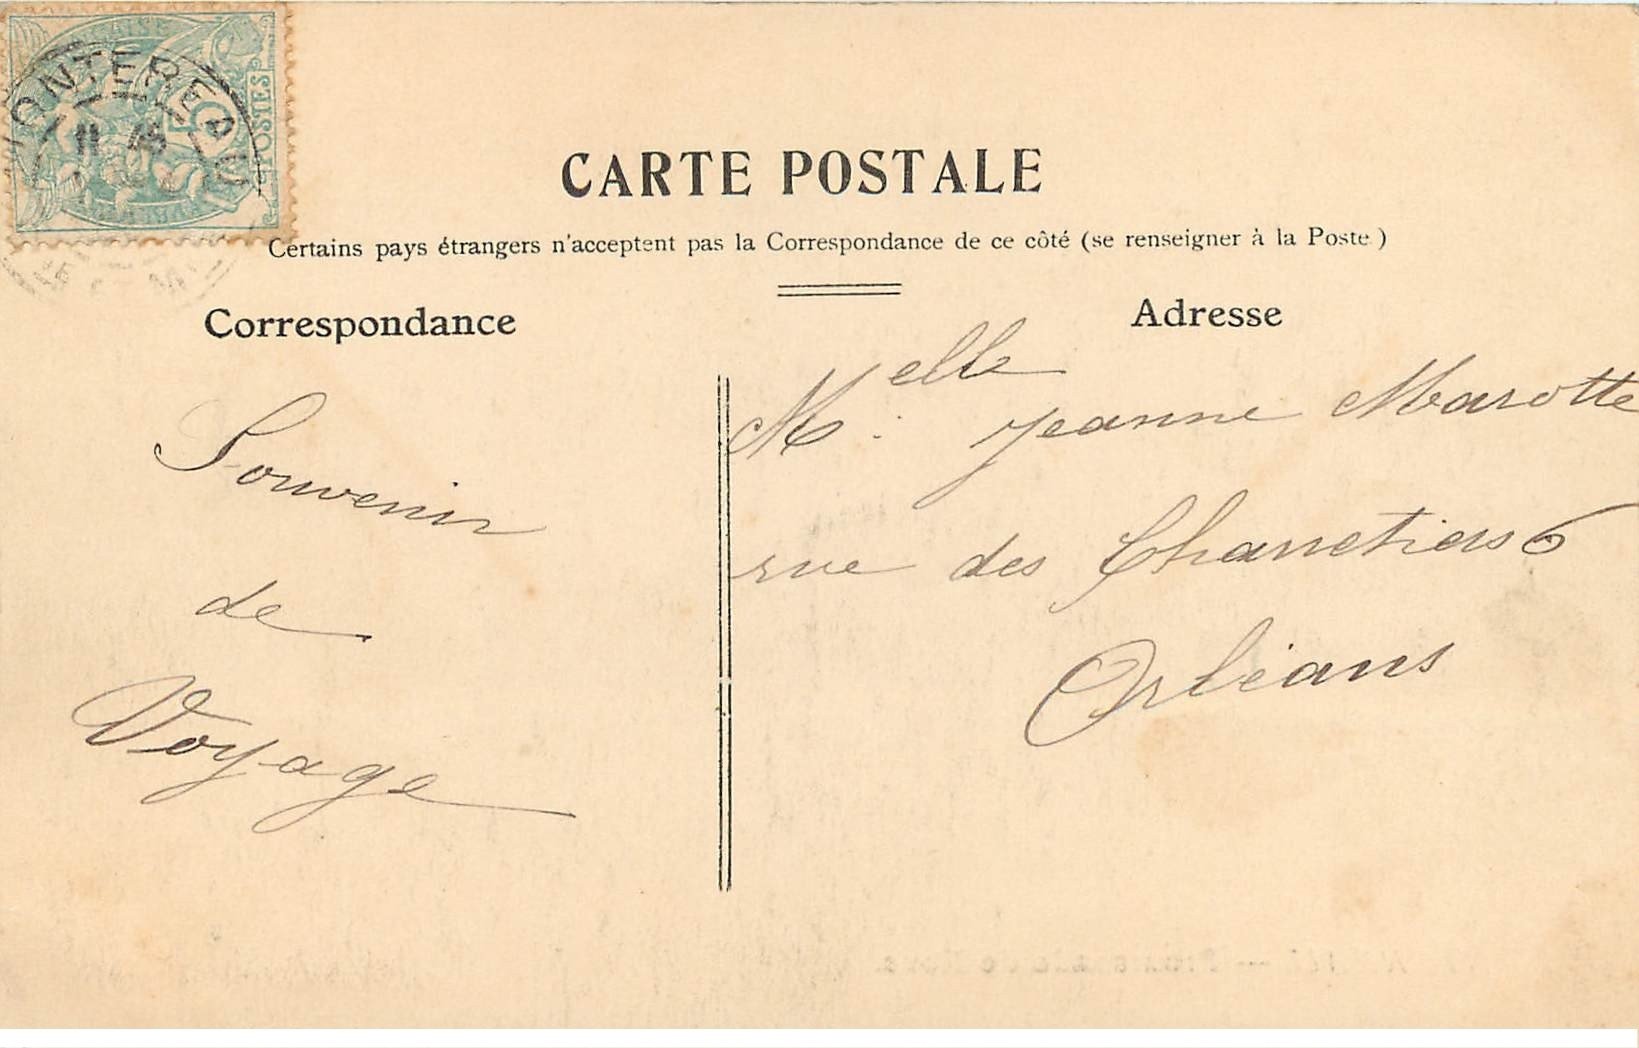 MONTEREAU
11
POSTES
CARTE POSTALE
Certains pays étrangers n'acceptent pas la Correspondance de ce côté (se renseigner à la Poste)
Correspondance
Souvenir
de
Voyage
Adresse
Melle Jeanne Marotte
rue des Charretiers 6
Orléans